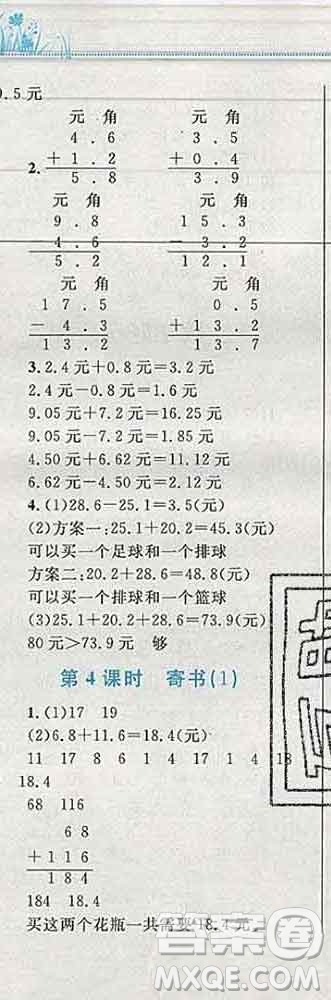 9.5元
元 角 元 角
4.6 3.5
2. +1.2 +0.4
5.8 3.9
元 角 元 角
9.8 15.3
-4.6 -3.2
5.2 12.1
元 角 元 角
17.5 0.5
-4.3 +13.2
13.2 13.7
3.2.4元+0.8元=3.2元
2.4元-0.8元=1.6元
9.05元+7.2元=16.25元
9.05元-7.2元=1.85元
4.50元+6.62元=11.12元
6.62元-4.50元=2.12元
4.(1)28.6-25.1=3.5(元)
(2)方案一:25.1+20.2=45.3(元)
可以买一个足球和一个排球
方案二:20.2+28.6=48.8(元)
可以买一个排球和一个篮球
(3)25.1+20.2+28.6=73.9(元)
80元>73.9元 够
第4课时 寄书(1)
1.(1)17 19
(2)6.8+11.6=18.4(元)
11 17 8 6 1 4 17 1 4 18
18.4
68 116
68
+116
184
184 18.4
买这两个花瓶一共需要18.4元。
答案圈
MXQE.COM